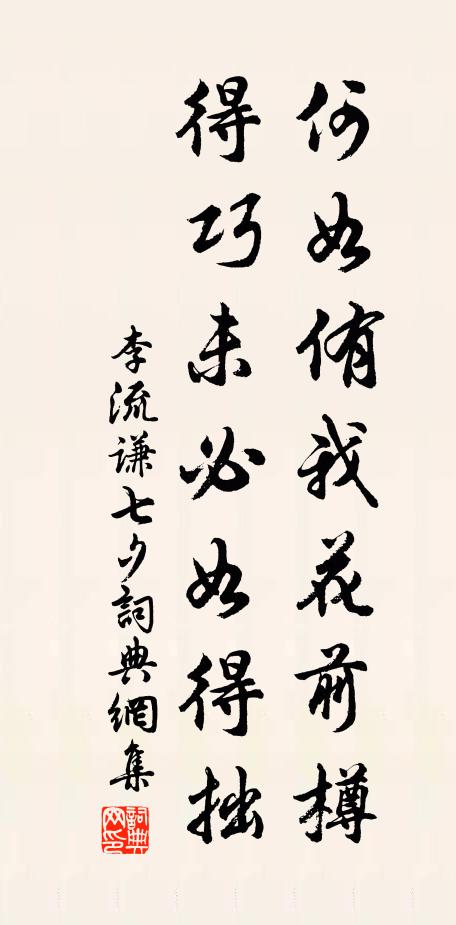 何如侑我花前樽
得巧未必如得拙
李流謙七夕詞典網集
詞典網印